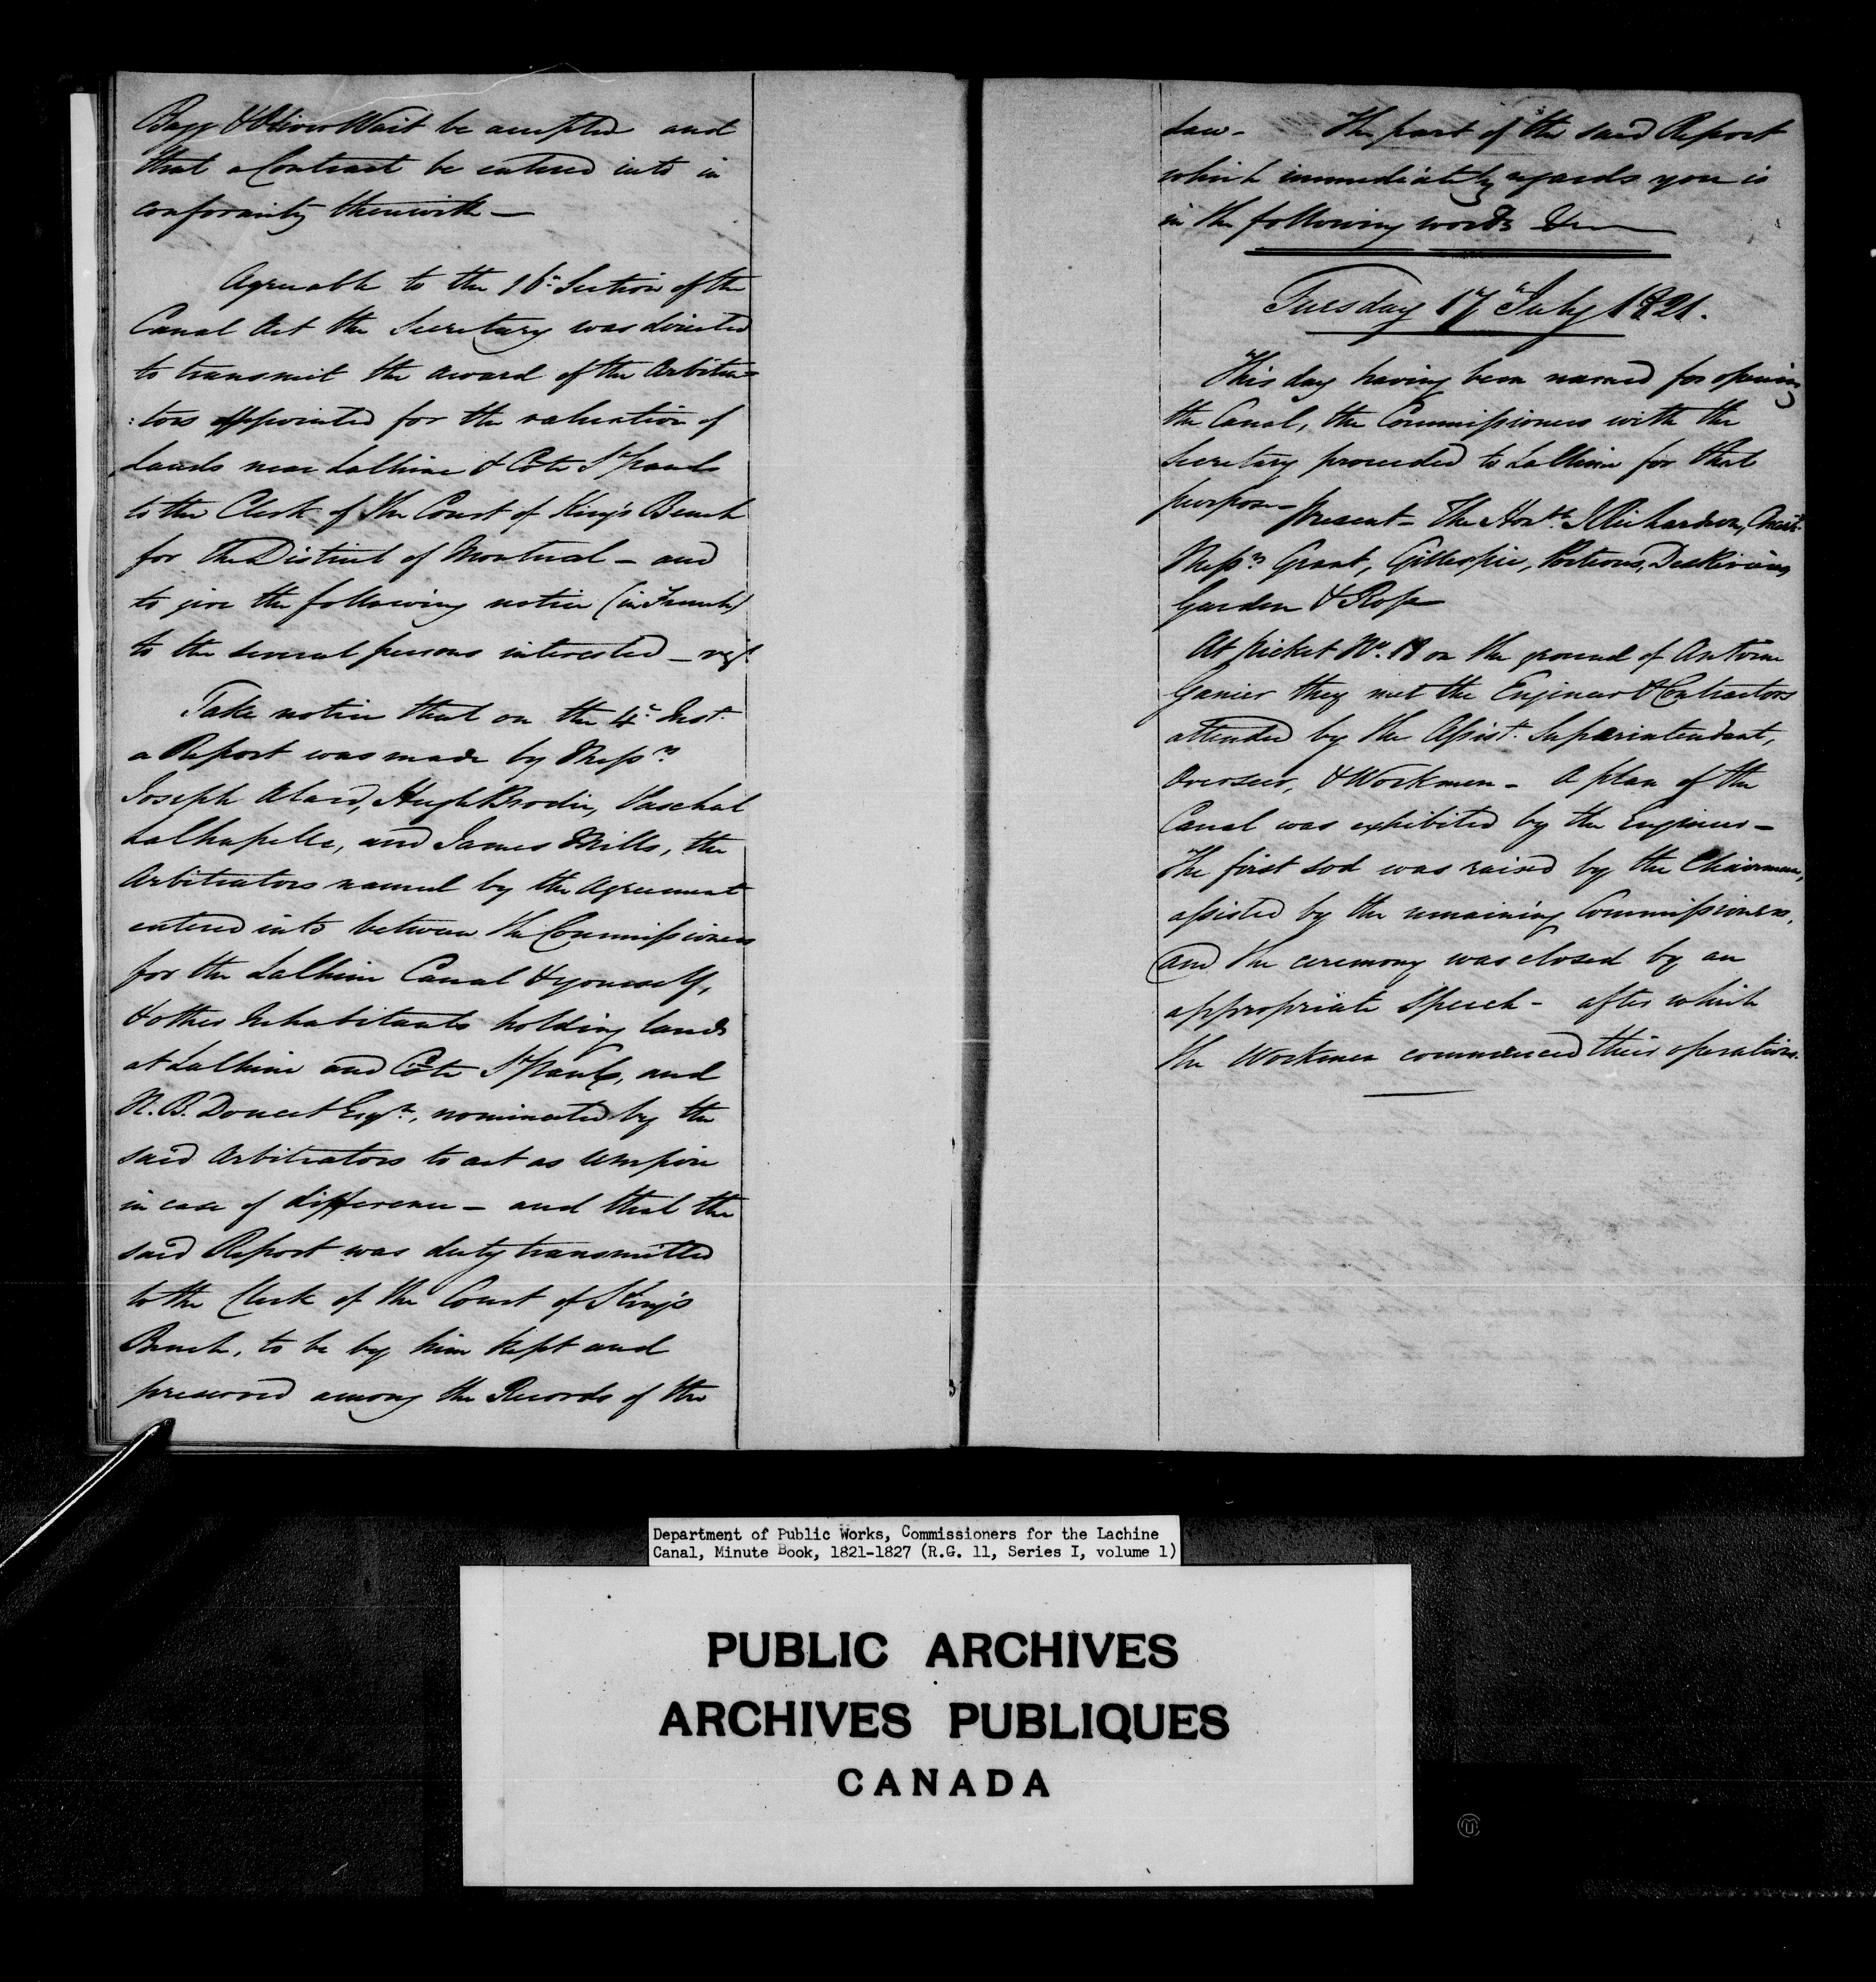 Bagg & Oliver Wait be accepted and
that a Contract be entered into in
conformity therewith —
Agreeable to the 16th Section of the
Canal Act the Secretary was directed
to transmit the award of the Arbitra=
:tors appointed for the valuation of
Lands near LaChine & Côte St Pauls
to the Clerk of the Court of King's Bench
for the District of Montreal - and
to give the following notice (in French)
to the several persons interested - vizt
Take notice that on the 4th Inst.
a Report was made by Messrs
Joseph Alard, Hugh Brodie, Paschal
LaChapelle, and James Mills, the
Arbitrators named by the Agreement
entered into between the Commissioners
for the LaChine Canal & yourself,
& other Inhabitants holding lands
at LaChine and Côte St Pauls, and
N. B. Doucet Esqre, nominated by the
said Arbitrators to act as Umpire
in case of difference - and that the
said Report was duly transmitted
to the Clerk of the Court of King's
Bench, to be by him kept and
preserved among the Records of the
Law - The part of the said Report
which immediately regards you is
in the following words &c
Tuesday 17th July 1821.
This day having been named for opening
the Canal, the Commissioners with the
Secretary proceeded to LaChine for that
purpose - Present - The Honble J Richardson,
Messrs Grant, Gillespie, Porteous, DesRivieres,
Garden & Ross
At Picket No. 18 on the ground of Antoine
Ganier they met the Engineer & Contractors
attended by the Assist. Superintendant,
Overseer, & Workmen - A plan of the
Canal was exhibited by the Engineer -
The first sod was raised by the Chairman,
assisted by the remaining Commissioners,
and the ceremony was closed by an
appropriate Speech - after which
the Workmen commenced their operations.
Department of Public Works, Commissioners for the Lachine
Canal, Minute Book, 1821-1827 (R.G. 11, Series I, volume 1)
PUBLIC ARCHIVES
ARCHIVES PUBLIQUES
CANADA